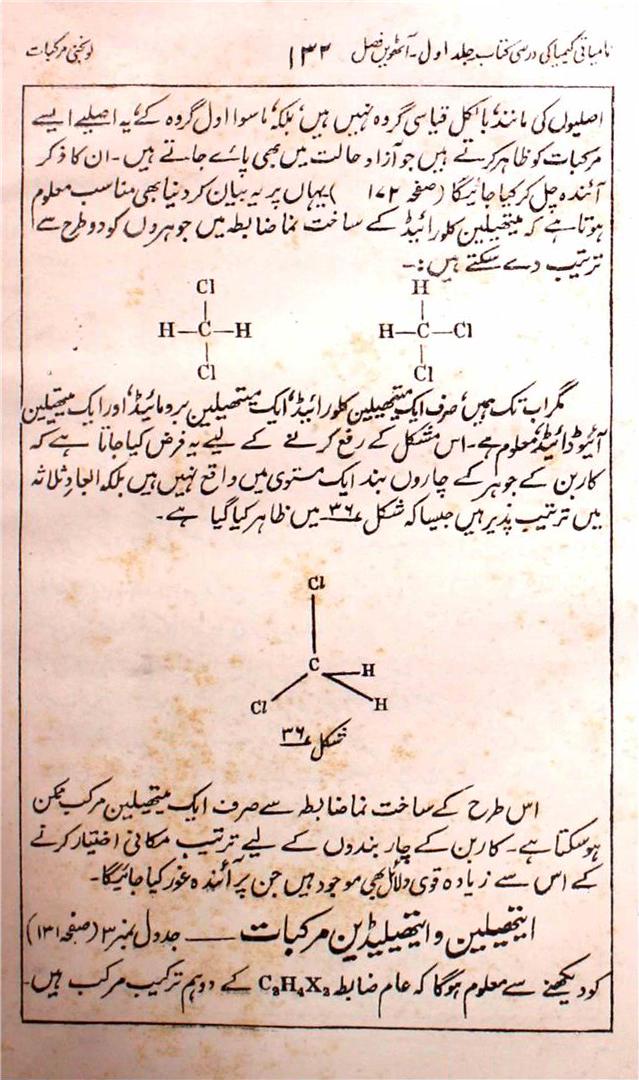 نامیاتی کیمیا کی درسی کتاب جلد اول۔ آٹھویں فصل ۱۳۲ لونجنی مرکبات
اصلیوں کی مانند، بالکل قیاسی گروہ نہیں ہیں، بلکہ، ماسوا اول گروہ کے، یہ اصلیے ایسے
مرکبات کو ظاہر کرتے ہیں جو آزاد حالت میں بھی پائے جاتے ہیں۔ ان کا ذکر
آئندہ چل کر کیا جائیگا (صفحہ ۱۷۲ ) یہاں پر یہ بیان کر دنیا بھی مناسب معلوم
ہوتا ہے کہ میتھیلین کلورائیڈ کے ساخت نما ضابطہ میں جوہروں کو دو طرح سے
ترتیب دے سکتے ہیں:۔
Cl
H—C—H
Cl
H
H—C—Cl
Cl
مگر اب تک ہمیں، صرف ایک میتھیلین کلورائیڈ، ایک میتھیلین برومائیڈ، اور ایک میتھیلین
آئیوڈائیڈ، معلوم ہے۔ اس مشکل کے رفع کرنے کے لیے یہ فرض کیا جاتا ہے کہ
کاربن کے جوہر کے چاروں بند ایک مستوی میں واقع نہیں ہیں بلکہ ابعادِ ثلاثہ
میں ترتیب پذیر ہیں جیسا کہ شکل ۳۶ میں ظاہر کیا گیا ہے۔
Cl
C H
Cl H
شکل ۳۶
اس طرح کے ساخت نما ضابطہ سے صرف ایک میتھیلین مرکب ممکن
ہو سکتا ہے۔ کاربن کے چار بندوں کے لیے ترتیب مکانی اختیار کرنے
کے اس سے زیادہ قوی دلائل بھی موجود ہیں جن پر آئندہ غور کیا جائیگا۔
ایتھیلین و ایتھیلیڈین مرکبات —— جدول نمبر ۳ (صفحہ ۱۳۱)
کو دیکھنے سے معلوم ہوگا کہ عام ضابطہ C₂H₄X₂ کے دو ہم ترکیب مرکب ہیں۔